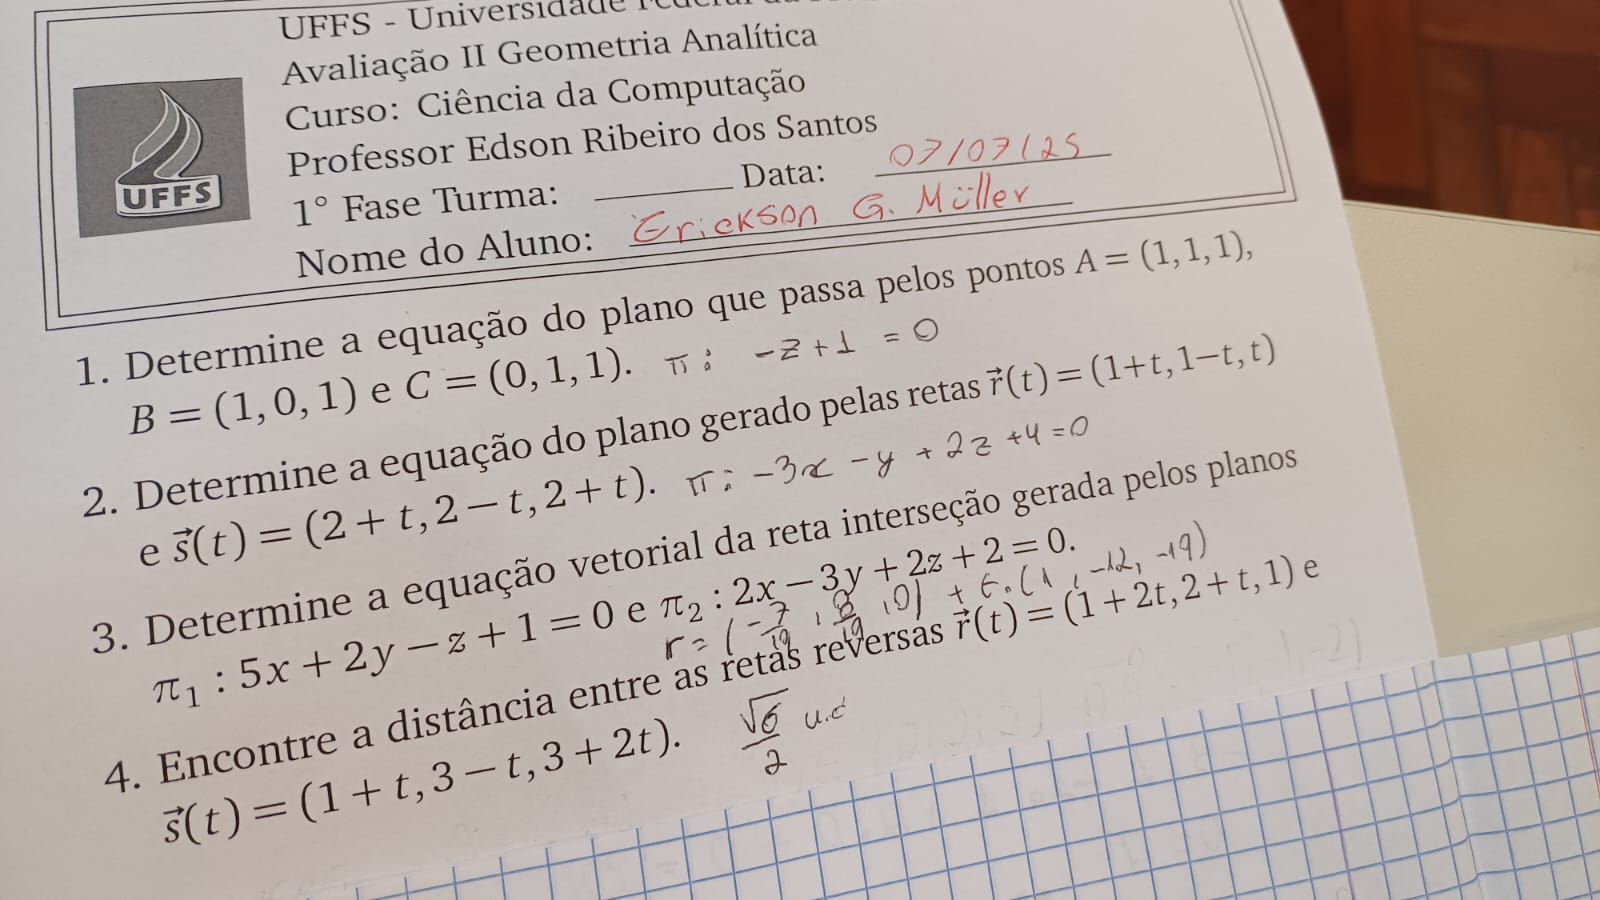 UFFS - Universidade Federal da
Avaliação II Geometria Analítica
Curso: Ciência da Computação
Professor Edson Ribeiro dos Santos
1° Fase Turma: ________ Data: 07/07/25
Nome do Aluno: Erickson G. Müller
UFFS
1. Determine a equação do plano que passa pelos pontos A = (1, 1, 1),
B = (1, 0, 1) e C = (0, 1, 1). π: -z + 1 = 0
2. Determine a equação do plano gerado pelas retas r⃗(t) = (1+t, 1−t, t)
e s⃗(t) = (2 + t, 2 − t, 2 + t). π: -3x - y + 2z + 4 = 0
3. Determine a equação vetorial da reta interseção gerada pelos planos
π₁ : 5x + 2y − z + 1 = 0 e π₂ : 2x − 3y + 2z + 2 = 0.
r = (-7/19, 8/19, 0) + t.(1, -12, -19)
4. Encontre a distância entre as retas reversas r⃗(t) = (1 + 2t, 2 + t, 1) e
s⃗(t) = (1 + t, 3 − t, 3 + 2t). √6/2 u.c